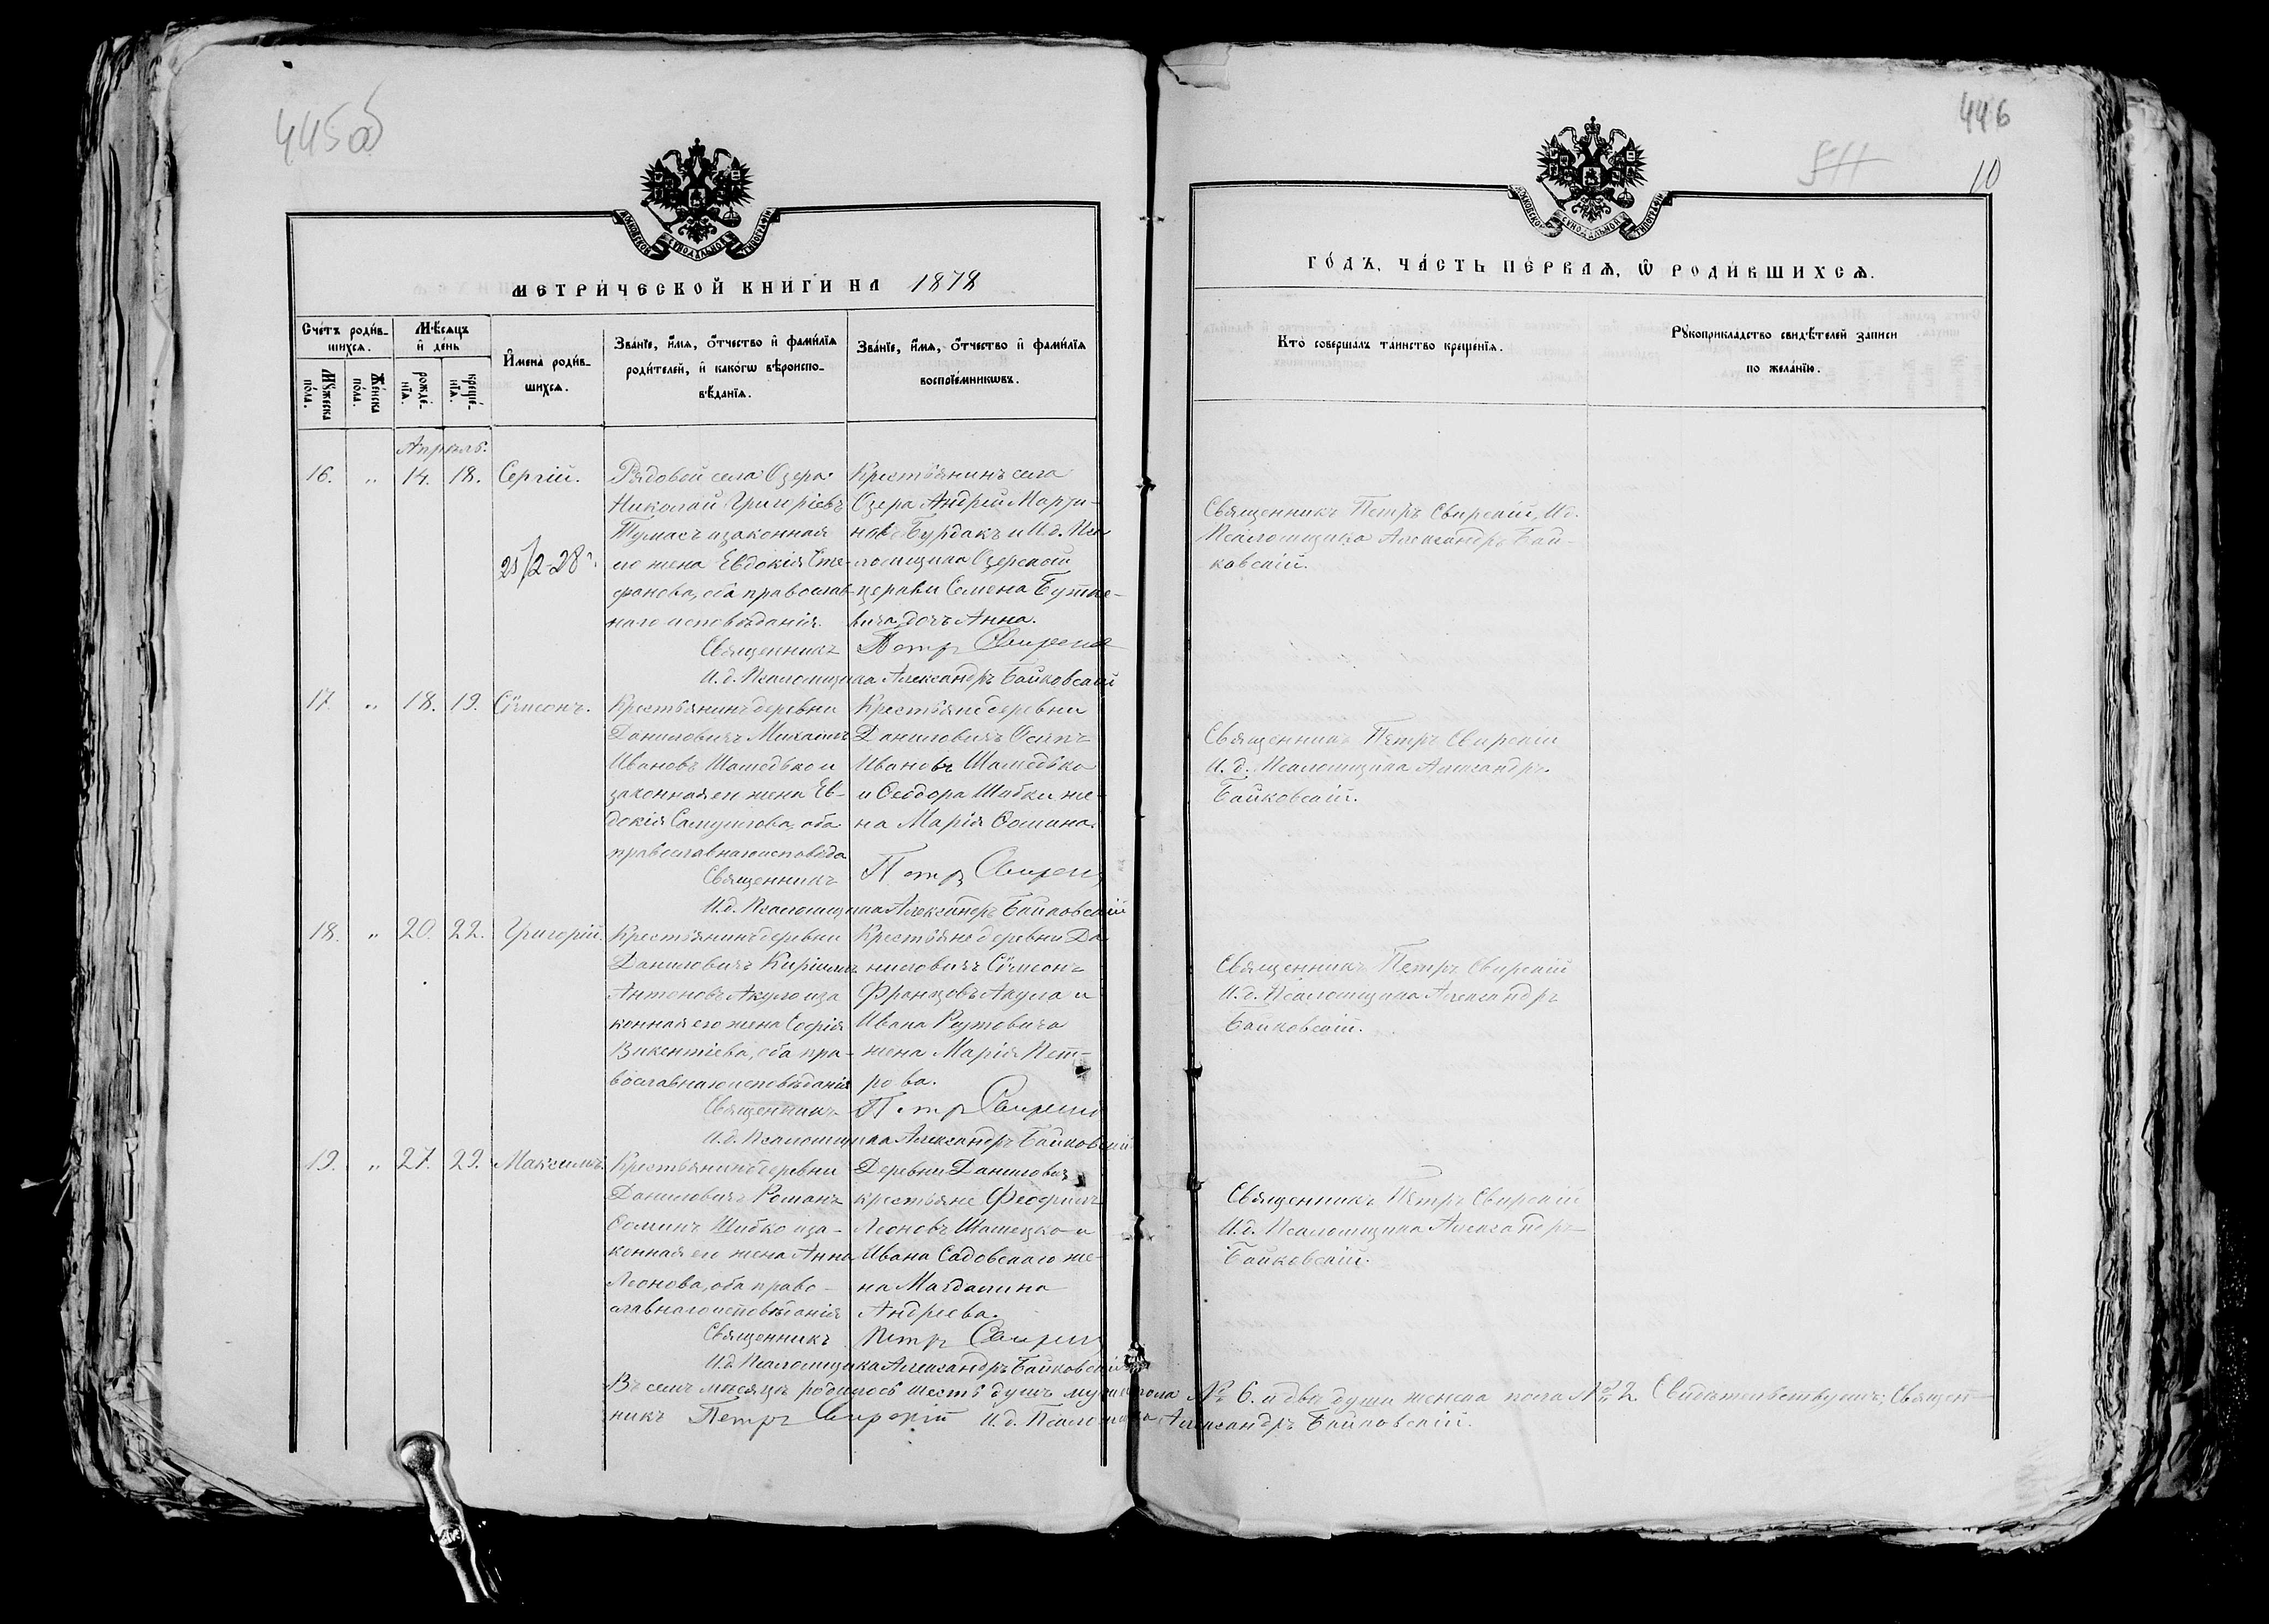 445об
446
511
10
МОСКОВСКОЙ СѴНОДАЛЬНОЙ ТИПОГРАФІИ
МОСКОВСКОЙ СѴНОДАЛЬНОЙ ТИПОГРАФІИ
МЕТРИ́ЧЕСКОЙ КНИ́ГИ НА 1878
Сче́тъ роди́в-
шихсѧ.
Мѣ́сѧцъ
и҆ де́нь
И҆мена̀ роди́в-
шихсѧ.
Зва́нїе, и҆́мѧ, ѻ҆́тчество и҆ фами́лїѧ
роди́телей, и҆ како́гѡ вѣроиспо-
вѣ́данїѧ.
Зва́нїе, и҆́мѧ, ѻ҆́тчество и҆ фами́лїѧ
воспрїе́мникѡвъ.
Мꙋ́жеска
по́ла.
Же́нска
по́ла.
рожде́-
нїѧ.
креще́-
нїѧ.
Апрѣль.
16. „ 14. 18. Сергій.
Рядовой села Озера
Николай Григоріевъ
Тумасъ и законная
его жена Евдокія Сте-
фанова, оба православ-
наго исповѣданія.
21/2-28 г.
Крестьянинъ села
Озера Андрей Марти-
новъ Бурдакъ и И.д. Пса
ломщика Озерской
церкви Семена Бутке-
вича дочь Анна.
Священникъ Петръ Свирскій
И.д. Псаломщика Александръ Байковскій
17. „ 18. 19. Сѵмеонъ.
Крестьянинъ деревни
Даниловичъ Михаилъ
Ивановъ Шамедько и
законная ег жена Ев-
докія Самуилова, оба
православнаго исповѣда
Крестьяне деревни
Даниловичъ Осипъ
Ивановъ Шамедько
и Ѳеодора Шибки же-
на Марія Ѳомина.
Священникъ Петръ Свирскій
И.д. Псаломщика Александръ Байковскій
18. „ 20. 22. Григорій.
Крестьянинъ деревни
Даниловичъ Кирилъ
Антоновъ Акуло и за
конная его жена Софія
Викентіева, оба пра-
вославнаго исповѣданія
Крестьяне деревни Да
ниловичъ Сѵмеонъ
Францовъ Акула и
Ивана Рутовича
жена Марія Пет-
рова.
Священникъ Петръ Свирскій
И.д. Псаломщика Александръ Байковскій
19. „ 27. 29. Максимъ.
Крестьянинъ деревни
Даниловичъ Романъ
Ѳоминъ Шибко и за-
конная его жена Анна
Леонова, оба право-
славнаго исповѣданія
Деревни Даниловичъ
крестьяне Феофилъ
Леоновъ Шамецко и
Ивана Садовскаго же-
на Магдалина
Андреева.
Священникъ Петръ Свирскій
И.д. Псаломщика Александръ Байковскій
Въ семъ мѣсяцѣ родилось шесть душъ муж. пола № 6. и двѣ души женска пола № 2. Свидѣтельствуемъ; Священ-
никъ Петръ Свирскій И.д. Псаломщика Александръ Байковскій.
ГО́ДЪ, ЧА́СТЬ ПЕ́РВАѦ, Ѡ҆ РОДИ́ВШИХСѦ.
Кто̀ соверша́лъ та́инство креще́нїѧ.
Рꙋкоприкла́дство свидѣ́телей за́писи
по жела́нїю.
Священникъ Петръ Свирскій, И.д.
Псаломщика Александръ Бай-
ковскій.
Священникъ Петръ Свирскій
И.д. Псаломщика Александръ
Байковскій.
Священникъ Петръ Свирскій
И.д. Псаломщика Александръ
Байковскій.
Священникъ Петръ Свирскій
И.д. Псаломщика Александръ
Байковскій.